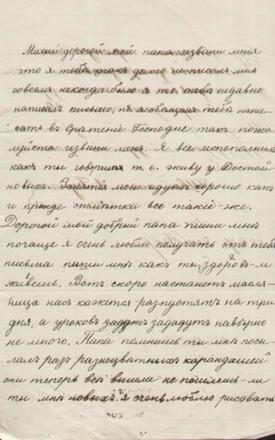 Милый дорогой мой папа извини меня
что я тебѣ такъ долго неписалъ мнѣ
совсем некогда было я те тебѣ недавно
написалъ письмо, но я обѣщалъ тебѣ напи-
сать въ Сретеніе Господне такъ пожа
луйста извини мень. Я все исполнил
какъ ты говорилъ т. е. живу у Достой
новыхъ. Занятія мои идутъ хорошо какъ
и прежде отмѣтки все такіе-же.
Дорогой мой добрый папа пиши мнѣ
почаще я очень люблю получать отъ тебя
письма пиши мнѣ какъ ты здоровъ-ли
живешь. Вотъ скоро настанетъ масля-
ница насъ кажется разпустятъ на три
дня, а уроковъ зададутъ навѣрно
не много. Папа помнишь ты мнѣ посы-
лалъ разноцвѣтныхъ карандашей
они теперь всѣ вышли не пошлешь-ли
ты мнѣ новыхъ? я очень люблю рисовать